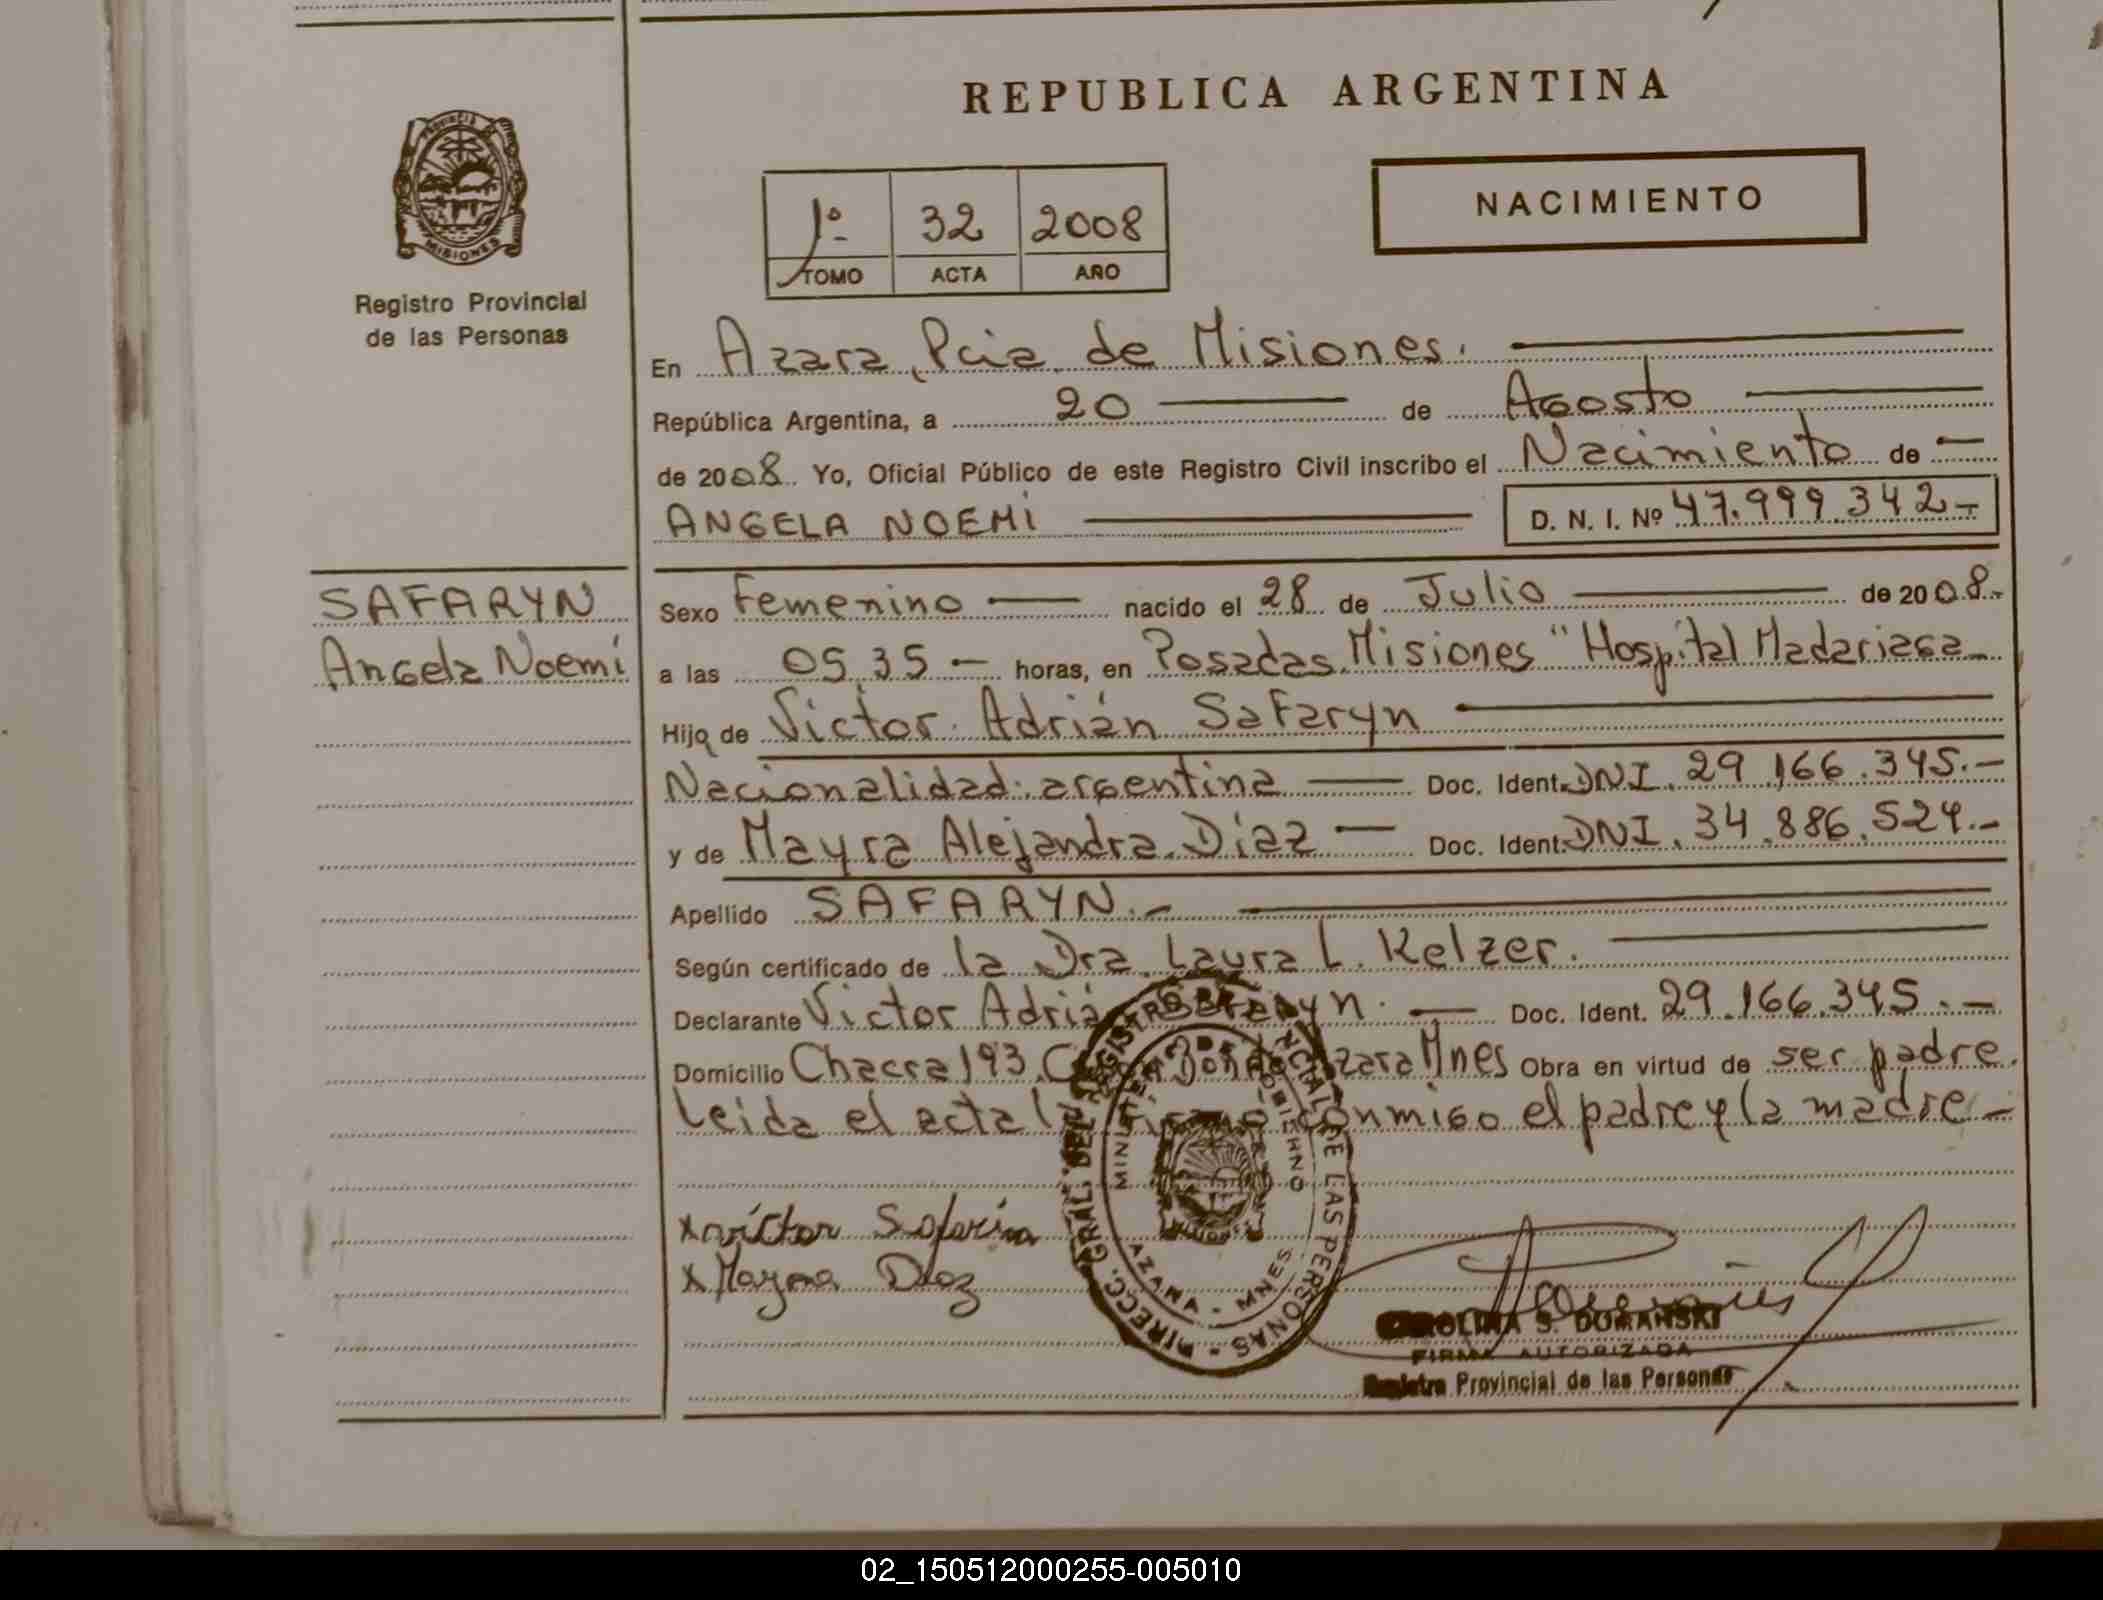 REPUBLICA ARGENTINA
PROVINCIA DE
MISIONES
Registro Provincial
de las Personas
NACIMIENTO
1º 32 2008
TOMO ACTA AÑO
En Azara, Pcia de Misiones.
República Argentina, a 20 de Agosto
de 2008. Yo, Oficial Público de este Registro Civil inscribo el Nacimiento de
ANGELA NOEMÍ D. N. I. Nº 47.999.342-
SAFARYN
Angela Noemí
Sexo Femenino nacido el 28 de Julio de 2008.-
a las 05,35 — horas, en Posadas Misiones "Hospital Madariaga
Hijo de Victor Adrián Safaryn
Nacionalidad: argentina Doc. Ident. DNI. 29.166.345.-
y de Mayra Alejandra Diaz — Doc. Ident. DNI. 34.886.524.-
Apellido SAFARYN.-
Según certificado de la Dra. Laura L. Kelzer.
Declarante Victor Adrián Safaryn. — Doc. Ident. 29.166.345.-
Domicilio Chacra 193. Azara Mnes Obra en virtud de ser padre.
Leida el acta la conmigo el padre y la madre-
x victor Safarin
x Mayra Diaz
DIRECC. GRAL. DEL REGISTRO PROVINCIAL DE LAS PERSONAS -
MINISTERIO DE GOBIERNO
AZARA - MNES
CAROLINA S. DURANSKI
FIRMA AUTORIZADA
Registro Provincial de las Personas
02_150512000255-005010